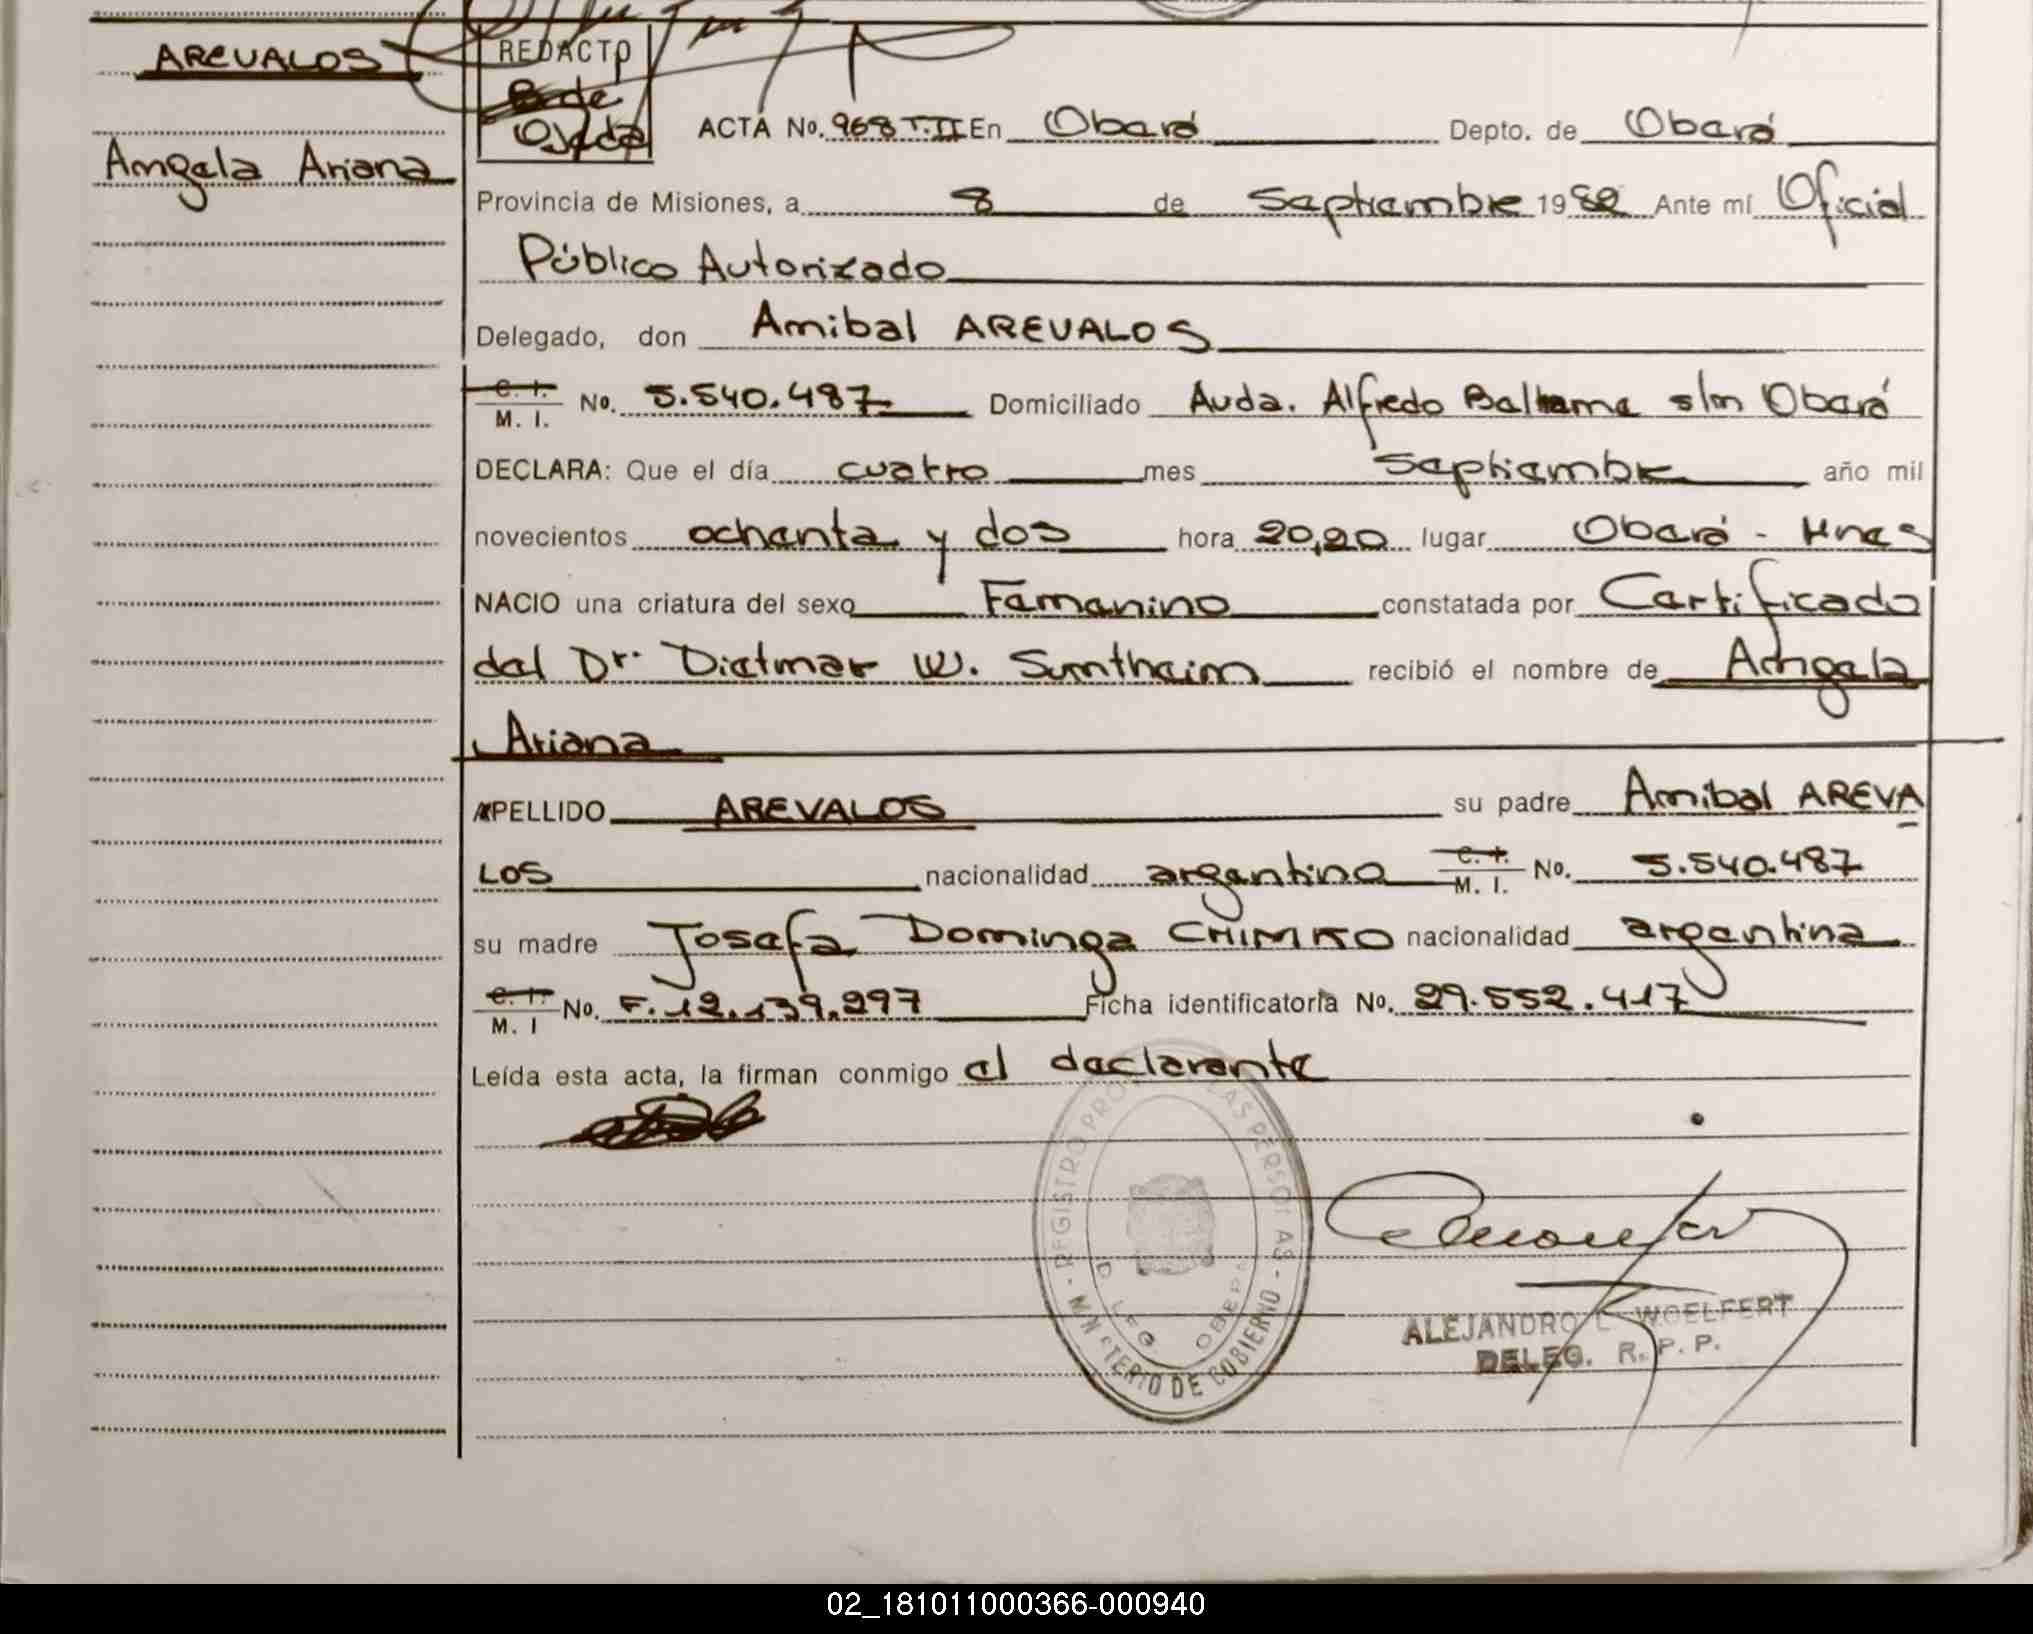 AREVALOS
Angela Ariana
REDACTO
B. de
Ojeda
ACTA No. 968 T.II En Oberá Depto. de Oberá
Provincia de Misiones, a 8 de Septiembre 1982 Ante mí Oficial
Público Autorizado
Delegado, don Anibal AREVALOS
C. I.
M. I. No. 5.540.487 Domiciliado Avda. Alfredo Beltrame s/n Oberá
DECLARA: Que el día cuatro mes Septiembre año mil
novecientos ochenta y dos hora 20,20 lugar Oberá - Mnes
NACIO una criatura del sexo Femenino constatada por Certificado
del Dr. Dietmar W. Sumtheim recibió el nombre de Angela
Ariana
APELLIDO AREVALOS su padre Anibal AREVA
LOS nacionalidad argentino C. I. M. I. No. 5.540.487
su madre Josefa Dominga CHIMKO nacionalidad argentina
C. I. M. I No. F. 12.139.297 Ficha identificatoria No. 29.552.417
Leída esta acta, la firman conmigo el declarante
REGISTRO PRO LAS PERSONAS - MINISTERIO DE GOBIERNO
DELEG OBERA
ALEJANDRO L WOELFERT
DELEG. R. P. P.
02_181011000366-000940